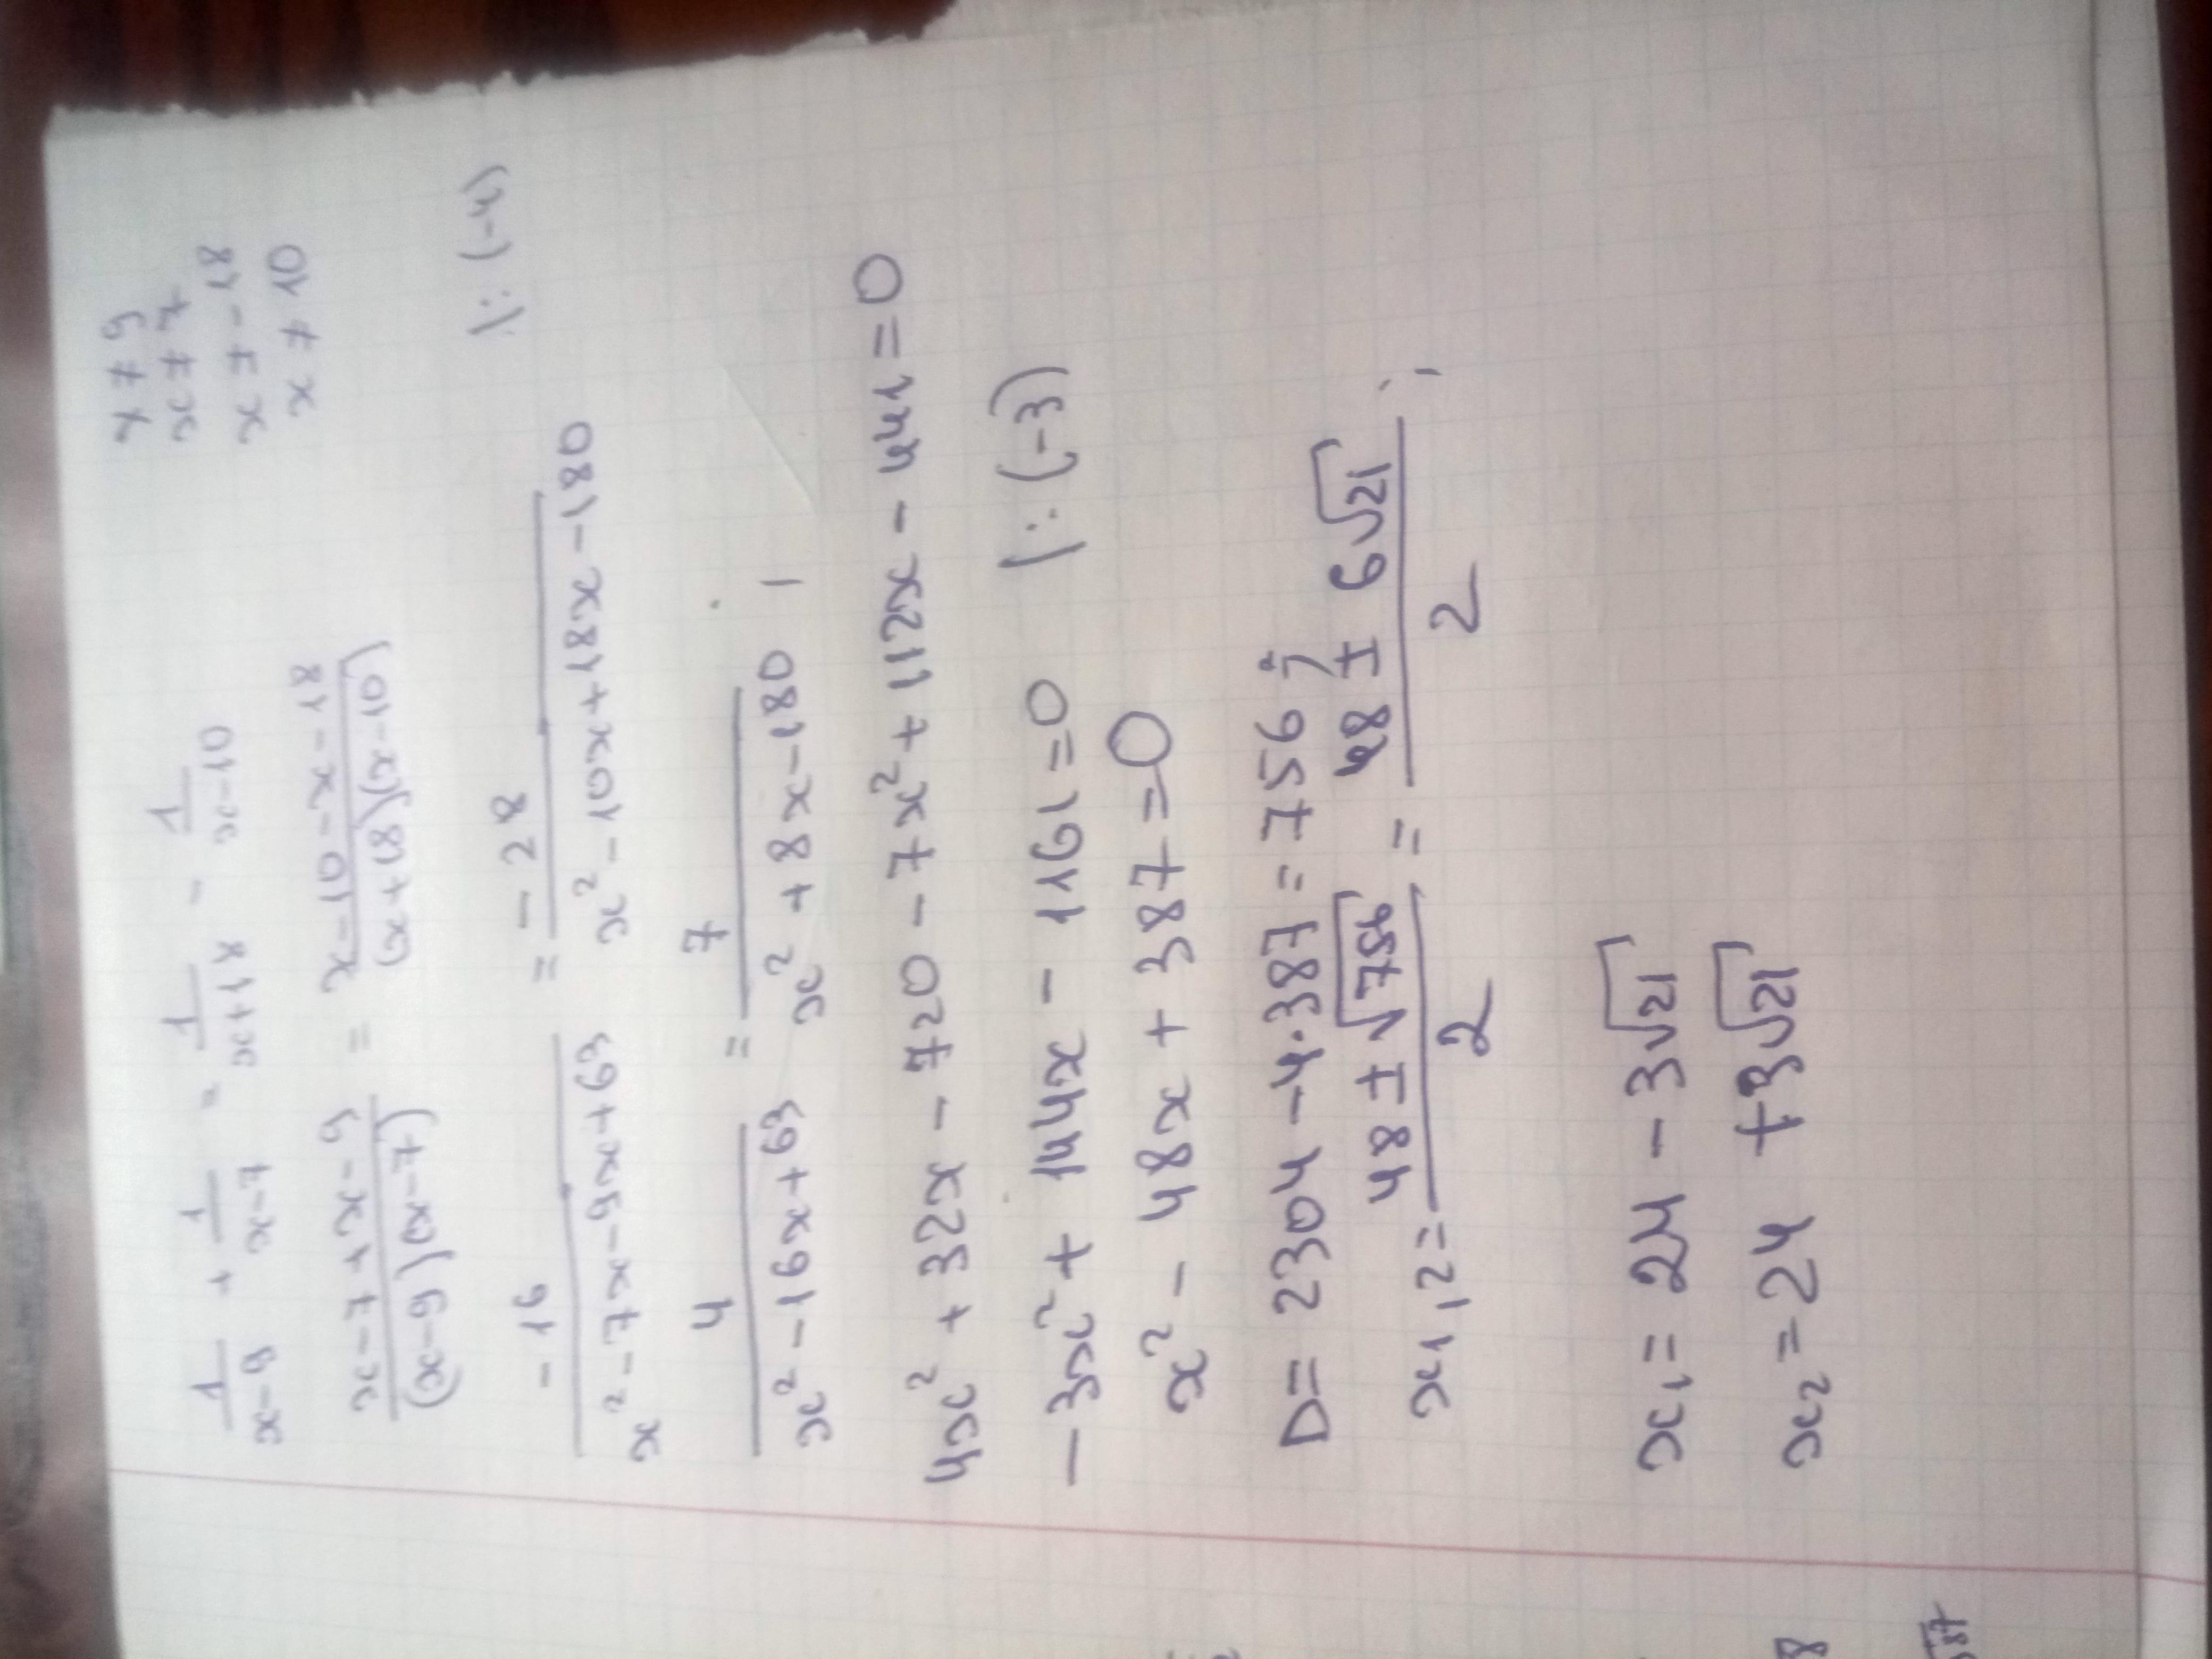 1/(x-9) + 1/(x-7) = 1/(x+18) - 1/(x-10)
x ≠ 9
x ≠ 7
x ≠ -18
x ≠ 10
(x-7+x-9)/((x-9)(x-7)) = (x-10-x-18)/((x+18)(x-10))
-16/(x²-7x-9x+63) = -28/(x²-10x+18x-180) |:(-4)
4/(x²-16x+63) = 7/(x²+8x-180) |
4x²+32x-720-7x²+112x-441=0
-3x²+144x-1161=0 |:(-3)
x²-48x+387=0
D=2304-4·387=756;
x1,2=(48±√756)/2 = (48±6√21)/2 ;
x₁=24-3√21
x₂=24+3√21
8